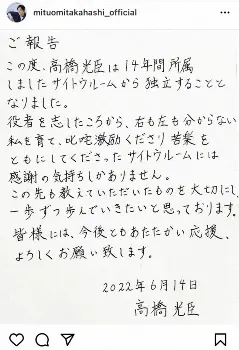 mituomitakahashi_official
ご報告
この度、高橋光臣は14年間所属
しましたサイトウルームから独立することと
なりました。
役者を志したころから、右も左も分からない
私を育て、叱咤激励くださり苦楽を
ともにしてくださったサイトウルームには
感謝の気持ちしかありません。
この先も教えていただいたものを大切にし、
一歩ずつ歩んでいきたいと思っております。
皆様には、今後ともあたたかい応援、
よろしくお願い致します。
2022年6月14日
高橋光臣